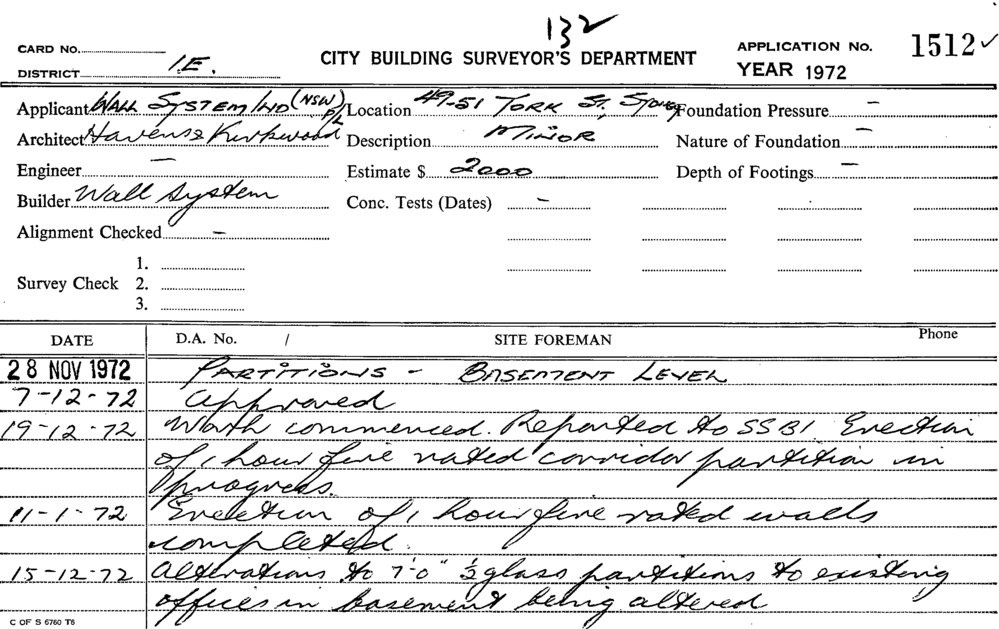 132
CARD No.
CITY BUILDING SURVEYOR'S DEPARTMENT
APPLICATION No. 1512 ✓
DISTRICT 1E.
YEAR 1972
Applicant WALL SYSTEM IND (NSW) P/L Location 49-51 YORK ST, SYDNEY Foundation Pressure –
Architect Havens & Kirkwood Description MINOR Nature of Foundation –
Engineer – Estimate $ 2000 Depth of Footings –
Builder Wall System Conc. Tests (Dates) –
Alignment Checked –
1.
Survey Check 2.
3.
DATE D.A. No. / SITE FOREMAN Phone
28 NOV 1972 PARTITIONS - BASEMENT LEVEL
7-12-72 Approved
19-12-72 Work commenced. Reported to SSBI Erection
of 1 hour fire rated corridor partition in
progress.
11-1-72 Erection of 1 hour fire rated walls
completed.
15-12-72 Alterations to 7'-0" ½ glass partitions to existing
offices in basement being altered
C OF S 6760 T6